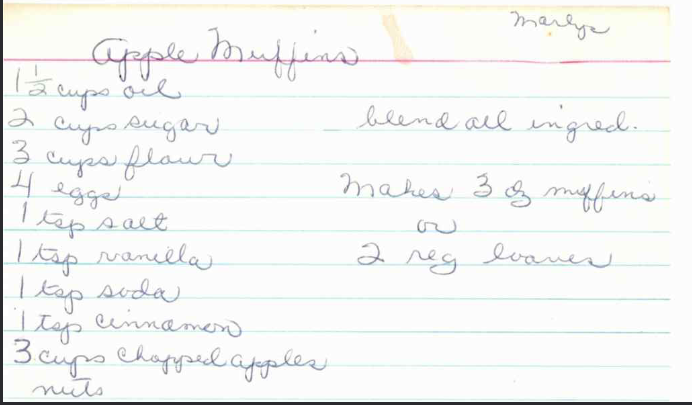 Marlys
Apple Muffins
1 1/2 cups oil
2 cups sugar
3 cups flour
4 eggs
1 tsp salt
1 tsp vanilla
1 tsp soda
1 tsp cinnamon
3 cups chopped apples
nuts
blend all ingred.
Makes 3 dz muffins
or
2 reg loaves